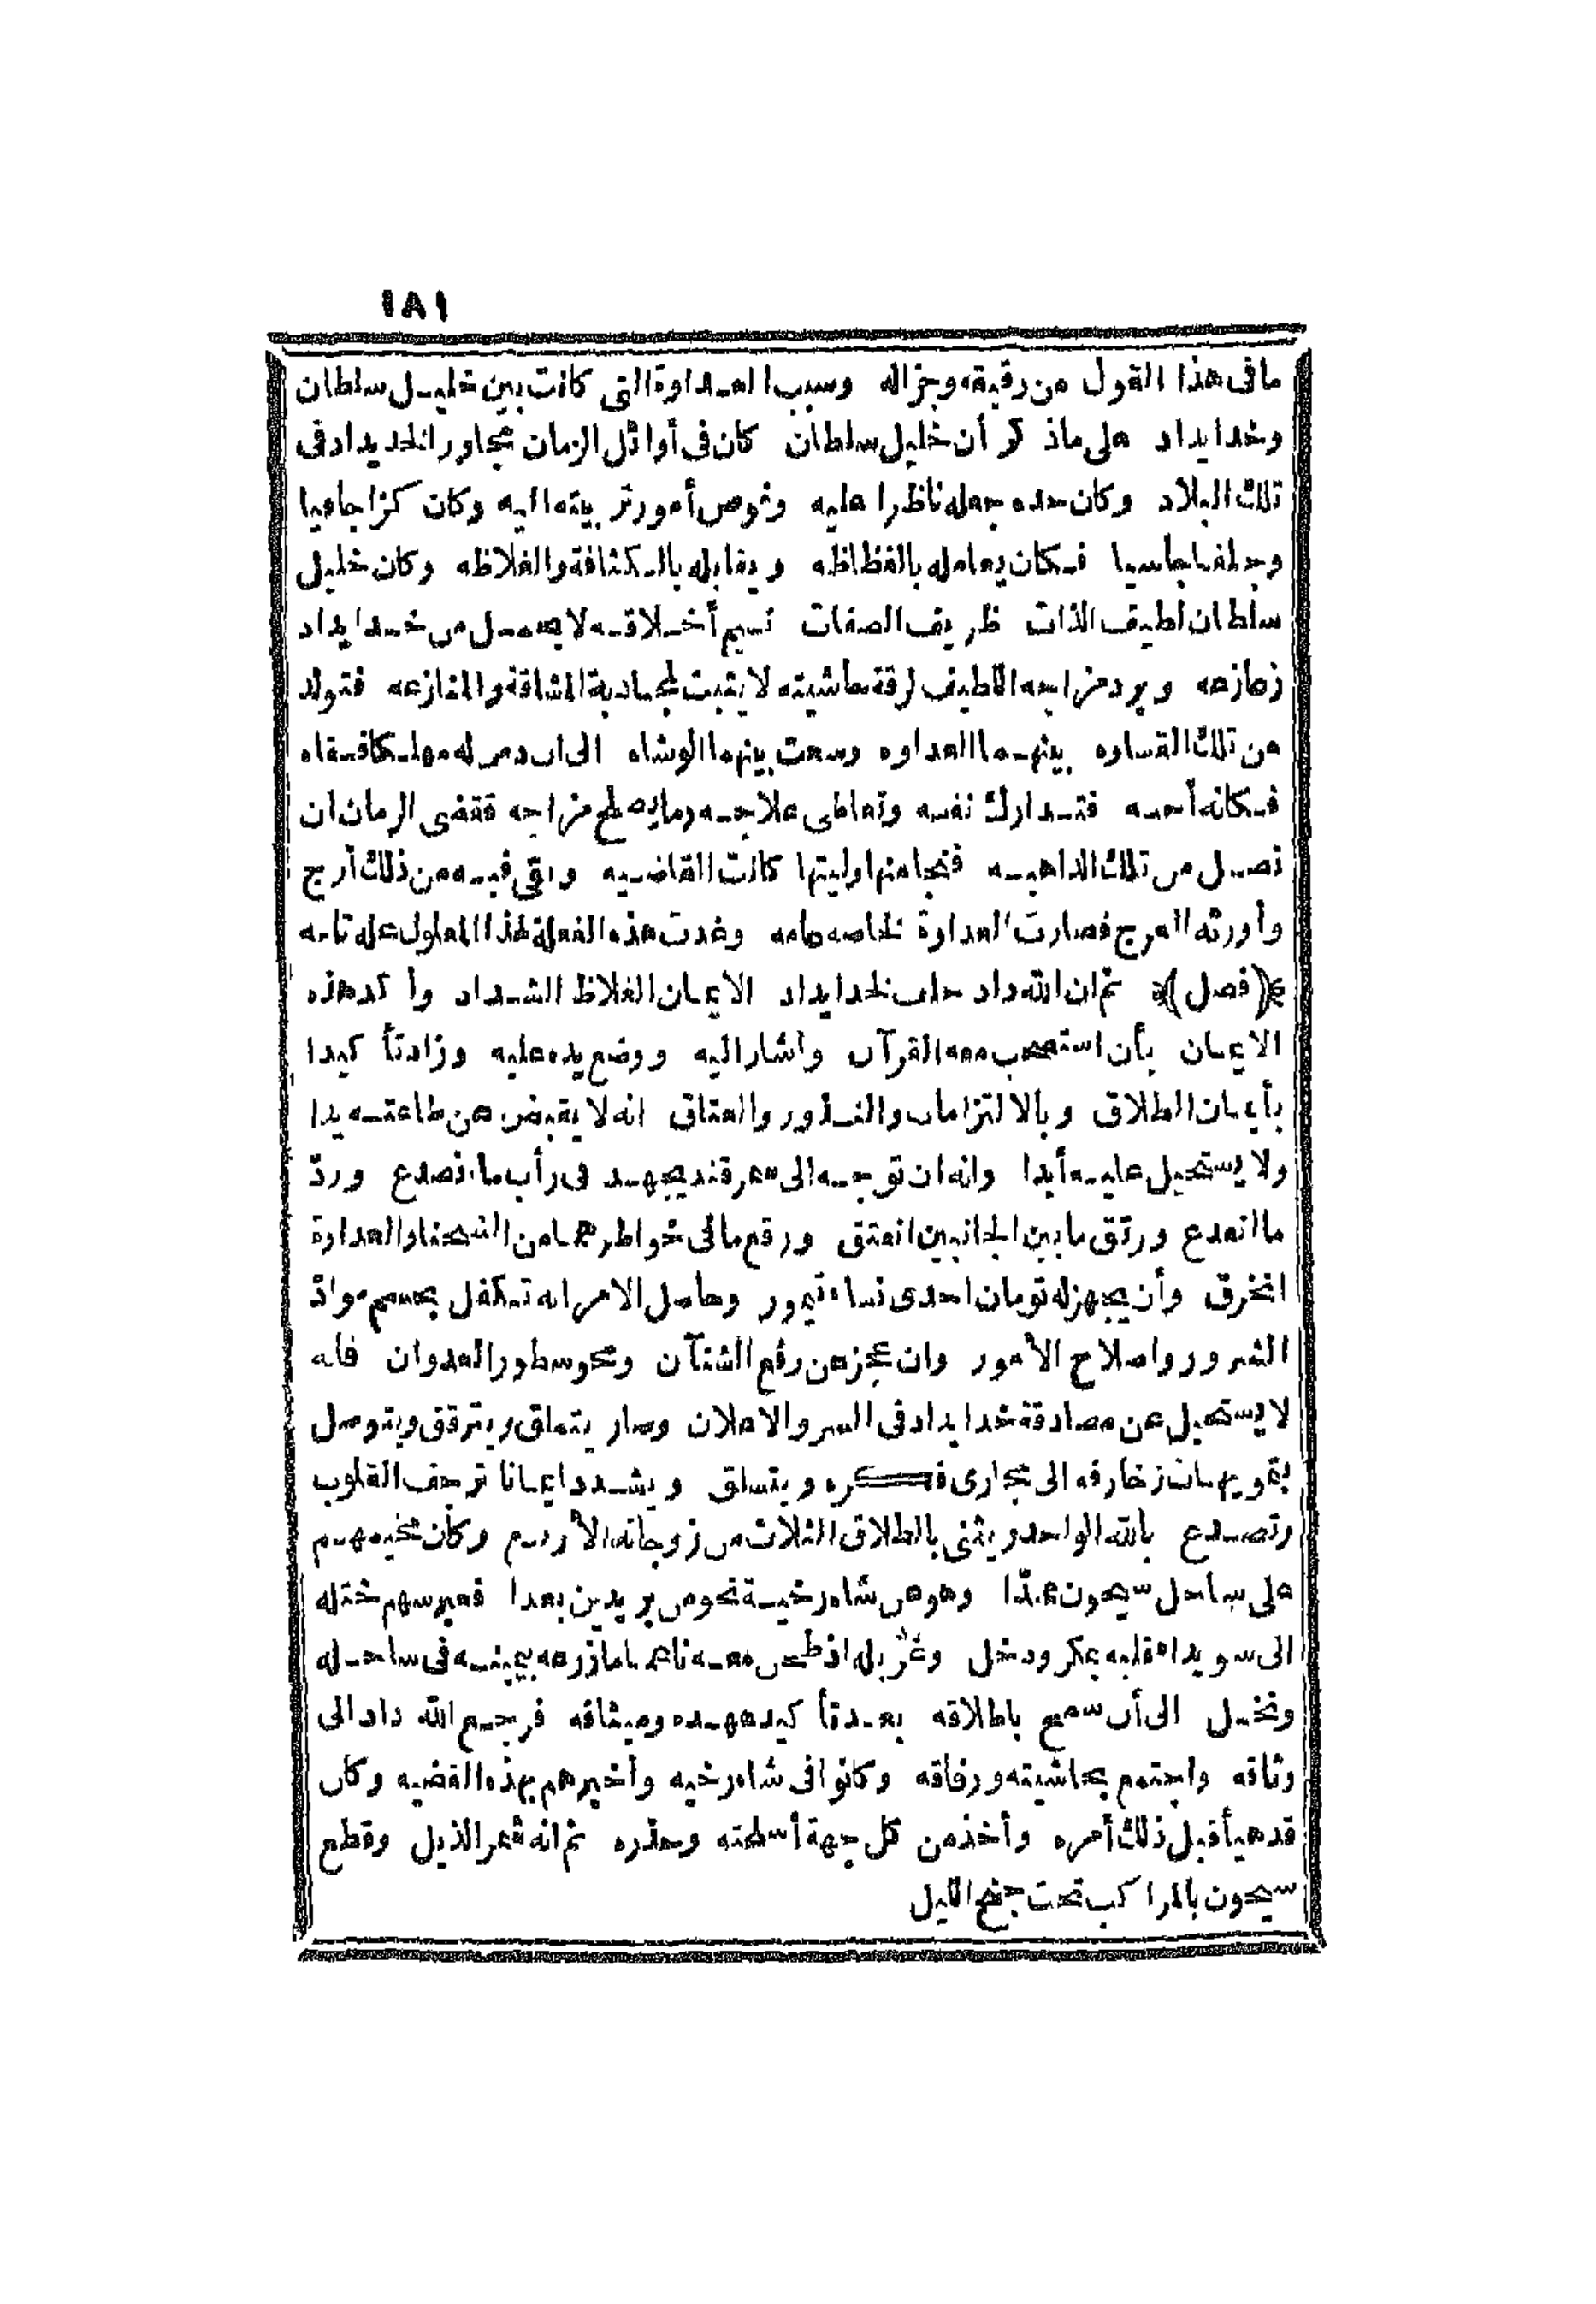 ١٨١
ما فى هذا القول من رقيقه وجزاله وسبب العداوة التى كانت بين خليل سلطان
وخدايداد على ماذكر أن خليل سلطان كان فى أوائل الزمان مجاورا لخديداد فى
تلك البلاد وكان جده جعله ناظرا عليه وفوض أمور تربيته اليه وكان كزا جافيا
وجلفا جاسيا فكان يعامله بالفظاظه ويقابله بالكثافة والغلاظه وكان خليل
سلطان لطيف الذات ظريف الصفات نسيم أخلاقه لا يحتمل من خدايداد
زعازعه وبرد مزاجه اللطيف لرقة حاشيته لا يثبت لمجاذبة المشاقة والمنازعه فتولد
من تلك القساوه بينهما العداوه وسعت بينهما الوشاه الى ان دس له مهلكا فسقاه
فكانه أحسه فتدارك نفسه وتعاطى علاجه وما يصلح مزاجه فقضى الزمان ان
نصل من تلك الداهيه فنجا منها وليتها كانت القاضيه وبقى فيه من ذلك أرج
وأورثه العرج فصارت العداوة الخاصه عامه وغدت هذه الفعلة لهذا المعلول علة تامه
﴿(فصل)﴾ ثم ان الله داد حلف لخدايداد الايمان الغلاظ الشداد وأكد هذه
الايمان بأن استصحب معه القرآن وأشار اليه ووضع يده عليه وزاد تأكيدا
بأيمان الطلاق وبالالتزامات والنذور والعتاق انه لا يقبض عن طاعته يدا
ولا يستحيل عليه أبدا وانه ان توجه الى سمرقند يجهد فى رأب ما انصدع وردّ
ما انصدع ورتق ما بين الجانبين انفتق ورقع ما فى خواطرهما من الشحناء والعداوة
انخرق وأن يجهز له تومان احدى نساء تيمور وحاصل الامر انه تكفل بحسم موادّ
الشرور واصلاح الأمور وان عجز عن رفع الشنآن ومحو سطور العدوان فانه
لا يستحيل عن مصادقة خدايداد فى السر والاعلان وصار يتملق ويترقق ويتوصل
بتمويهات زخارفه الى مجارى فكره ويتسلق ويشدد ايمانا ترجف القلوب
وتصدع بالله الواحد ويثنى بالطلاق الثلاث من زوجاته الأربع وكان مخيمهم
على ساحل سيحون وهو من شاه رخية نحو من بريدين بعدا فعبر سهم ختله
الى سويداء قلبه بمكر ودخل وغربله اذ طحن معه ناعما ما زرعه بيمينه فى ساحله
ونخل الى أن سمح باطلاقه بعد تأكيد عهده وميثاقه فرجع الله داد الى
وثاقه واجتمع بحاشيته ورفاقه وكانوا فى شاه رخيه وأخبرهم بهذه القضيه وكان
قد هيأ قبل ذلك أمره وأخذ من كل جهة أسلحته وحذره ثم انه شمر الذيل وقطع
سيحون بالمراكب تحت جنح الليل